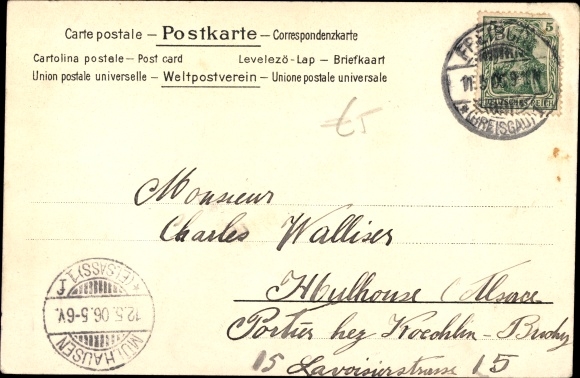 Carte postale – Postkarte – Correspondenzkarte
Cartolina postale – Post card Levelezö - Lap – Briefkaart
Union postale universelle – Weltpostverein – Unione postale universale
5
DEUTSCHES REICH
FREIBURG
(BREISGAU) 1
£5
Monsieur
Charles Walliser
Mulhouse (Alsace
Portier hey Koechlin - Buchy
15 Lavoisierstrasse 15
MÜLHAUSEN
12.5.06.5-6V.
*(ELSASS) 1 f